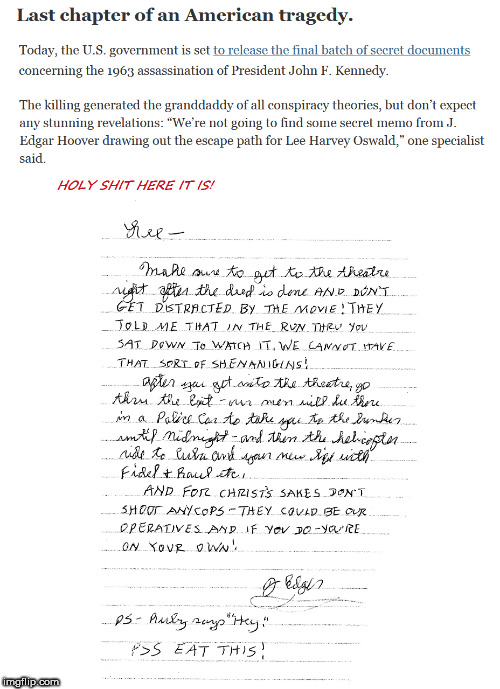 Last chapter of an American tragedy.
Today, the U.S. government is set to release the final batch of secret documents
concerning the 1963 assassination of President John F. Kennedy.
The killing generated the granddaddy of all conspiracy theories, but don't expect
any stunning revelations: “We're not going to find some secret memo from J.
Edgar Hoover drawing out the escape path for Lee Harvey Oswald,” one specialist
said.
HOLY SHIT HERE IT IS!
Lee —
Make sure to get to the theatre
right after the deed is done AND DON'T
GET DISTRACTED BY THE MOVIE! THEY
TOLD ME THAT IN THE RUN THRU YOU
SAT DOWN TO WATCH IT. WE CANNOT HAVE
THAT SORT OF SHENANIGINS!
After you get into the theatre, go
thru the Exit - our men will be there
in a Police Car to take you to the bunker
until midnight - and then the helicopter
ride to Cuba and your new life with
Fidel & Raul etc.
AND FOR CHRIST'S SAKES DON'T
SHOOT ANY COPS - THEY COULD BE OUR
OPERATIVES AND IF YOU DO - YOU'RE
ON YOUR OWN!
J Edgar
PS - Ruby says "Hey."
PSS EAT THIS!
imgflip.com